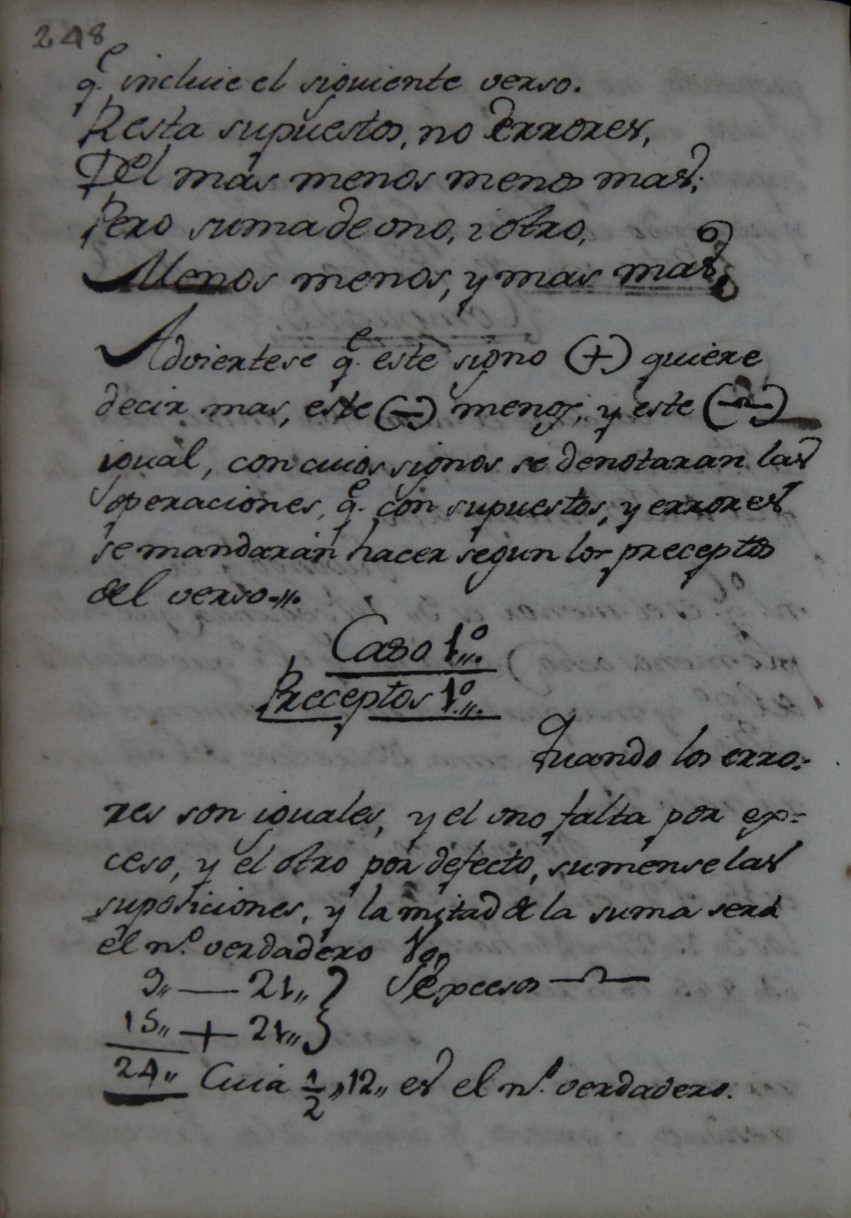 248
q.e incluie el siguiente verso.
Resta supuestos, no Errores,
Del mas menos menos mas;
Pero suma de uno, i otro,
Menos menos, y mas mas
Adviertese q.e este signo (+) quiere
decir mas, este (—) menos, y este (—~—)
igual, con cuios signos se denotaran las
operaciones, q.e con supuestos, y errores
se mandarán hacer segun los preceptos
del verso.
Caso 1.º
Preceptos 1.º
Quando los erro-
res son iguales, y el uno falta por ex=
ceso, y el otro por defecto, sumense las
suposiciones, y la mitad de la suma será
el n.º verdadero
9,, — 21,, }
15,, + 21,, }
24,, Cuia 1/2,, 12,, es el n.º verdadero.